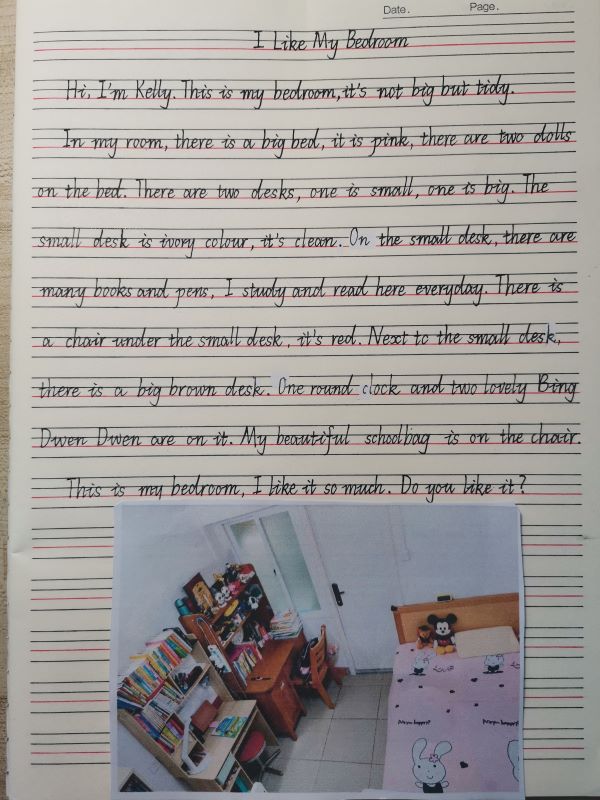 Date.    Page.
I Like My Bedroom
Hi, I'm Kelly. This is my bedroom, it's not big but tidy.
In my room, there is a big bed, it is pink, there are two dolls
on the bed. There are two desks, one is small, one is big. The
small desk is ivory colour, it's clean. On the small desk, there are
many books and pens, I study and read here everyday. There is
a chair under the small desk, it's red. Next to the small desk,
there is a big brown desk. One round clock and two lovely Bing
Dwen Dwen are on it. My beautiful schoolbag is on the chair.
This is my bedroom, I like it so much. Do you like it?